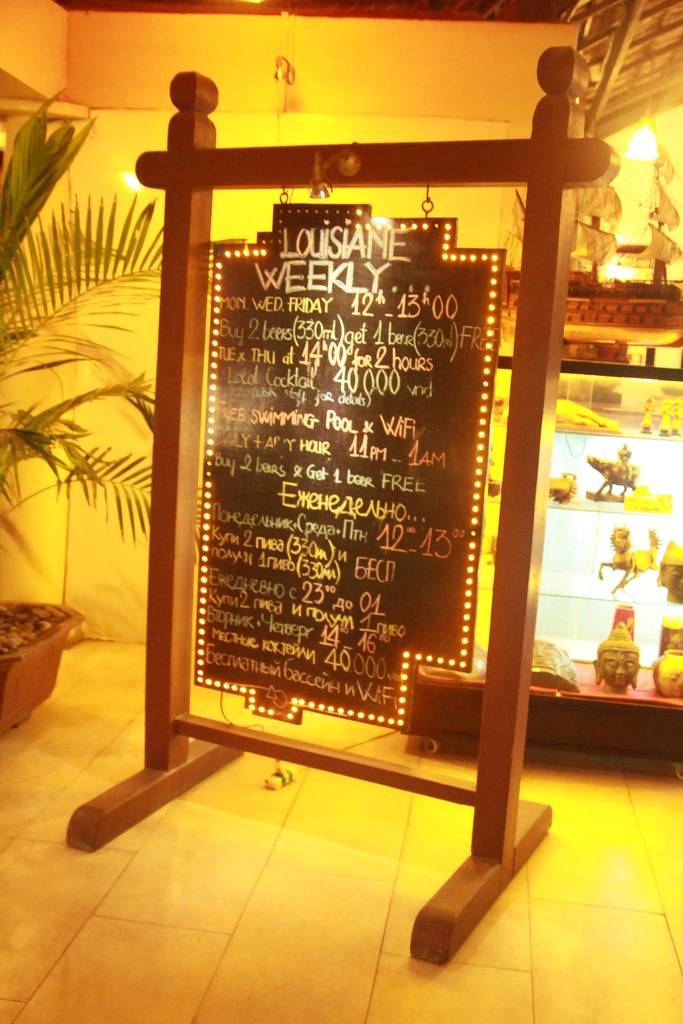 LOUISIANE
WEEKLY...
MON. WED. FRIDAY 12h - 13h00
Buy 2 beers (330ml) get 1 beer (330ml) FREE
TUE + THU at 14h00 for 2 hours
Local Cocktail 40 000 vnd
staff for details)
FREE SWIMMING POOL & WiFi
HOUR 11PM - 1AM
Buy 2 beers & Get 1 beer FREE
Еженедельно...
Понедельник+Среда+Птн 12⁰⁰-13⁰⁰
Купи 2 пива (330мл) и
получи 1 пиво (330мл) БЕСП
Ежедневно с 23⁰⁰ до 01
Купи 2 пива и получи 1 пиво
Вторник + Четверг 14⁰⁰ 16⁰⁰
Местные коктейли 40 000
Бесплатный бассейн и WiFi